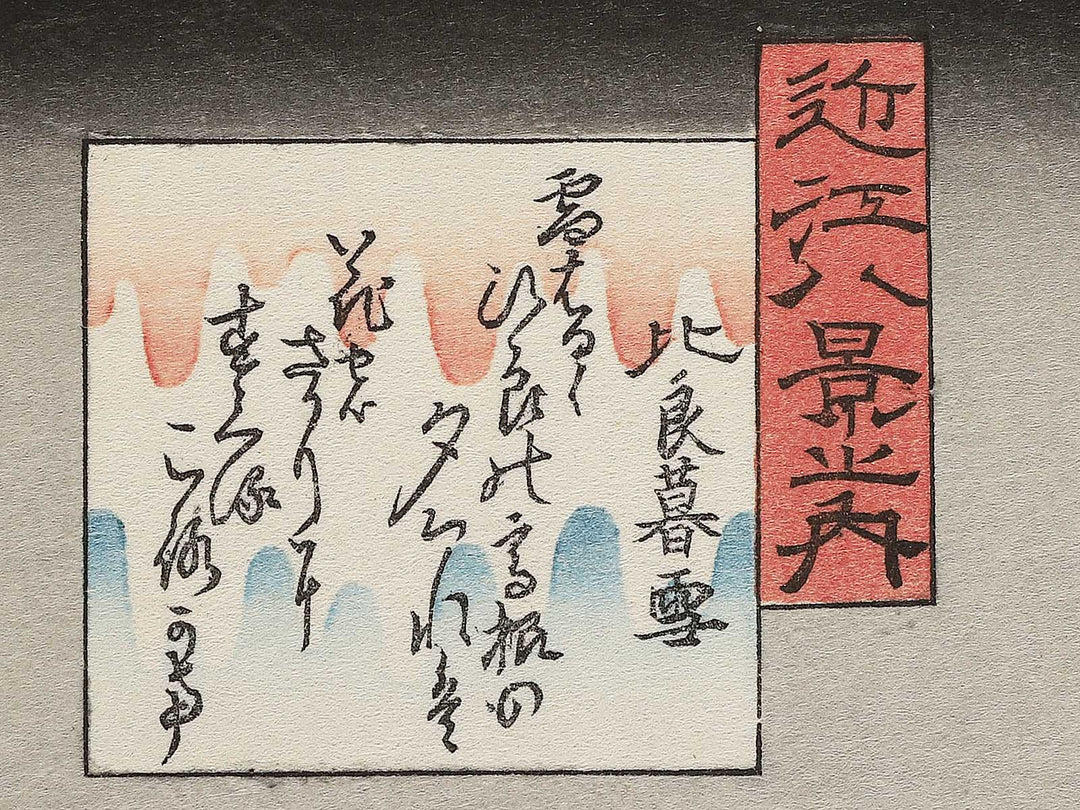 近江八景之内
比良暮雪
雪はるゝ
比良の高根の
夕くれは
花の
さかりに
すくる
ころかな